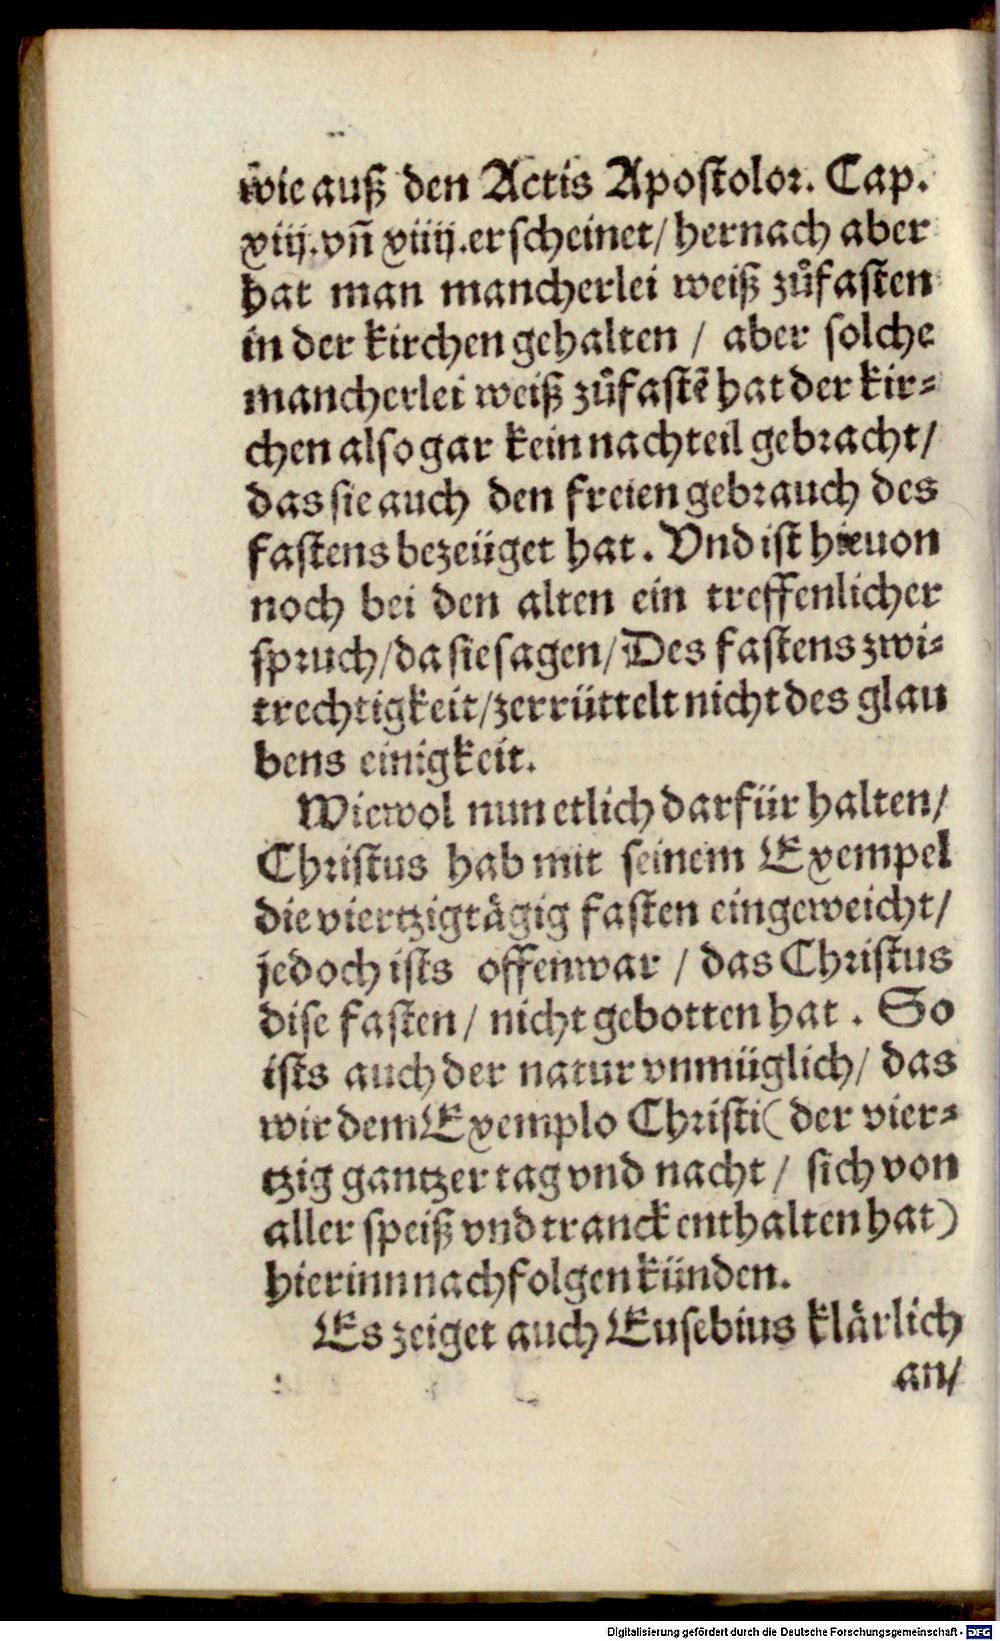 wie auß den Actis Apostolor. Cap.
xiij. vñ xiiij. erscheinet/ hernach aber
hat man mancherlei weiß zůfasten
in der kirchen gehalten / aber solche
mancherlei weiß zůfastẽ hat der kir-
chen also gar kein nachteil gebracht/
das sie auch den freien gebrauch des
fastens bezeüget hat. Vnd ist hieuon
noch bei den alten ein treffenlicher
spruch/ da sie sagen/ Des fastens zwi-
trechtigkeit/ zerrüttelt nicht des glau
bens einigkeit.
Wiewol nun etlich darfür halten/
Christus hab mit seinem Exempel
die viertzigtägig fasten eingeweicht/
jedoch ists offenwar / das Christus
dise fasten/ nicht gebotten hat. So
ists auch der natur vnmüglich/ das
wir dem Exemplo Christi (der vier-
tzig gantzer tag vnd nacht/ sich von
aller speiß vnd tranck enthalten hat)
hierinn nachfolgen künden.
Es zeiget auch Eusebius klärlich
an/
Digitalisierung gefördert durch die Deutsche Forschungsgemeinschaft - DFG